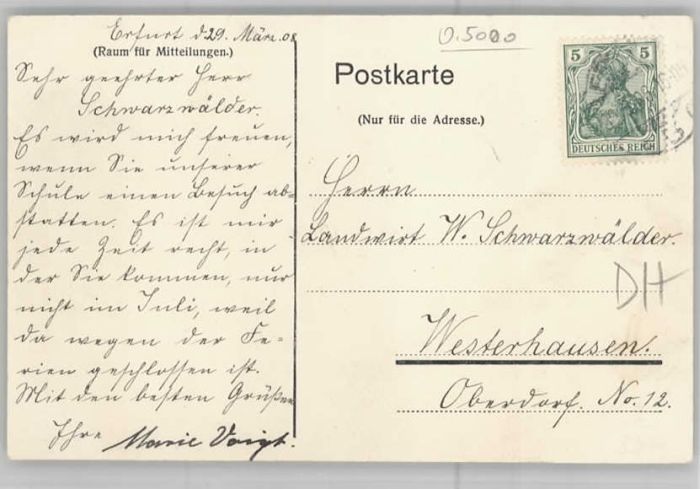 Erfurt d 29. März. 08
(Raum für Mitteilungen.)
Sehr geehrter Herr
Schwarzwälder.
Es wird mich freuen,
wenn Sie unserer
Schule einen Besuch ab=
statten. Es ist mir
jede Zeit recht, in
der Sie kommen, nur
nicht im Juli, weil
da wegen der Fe=
rien geschlossen ist.
Mit den besten Grüßen
Ihre Marie Voigt.
0.5000
Postkarte
(Nur für die Adresse.)
5 5
DEUTSCHES REICH
Herrn
Landwirt W. Schwarzwälder.
DH
Westerhausen.
Oberdorf. No. 12.